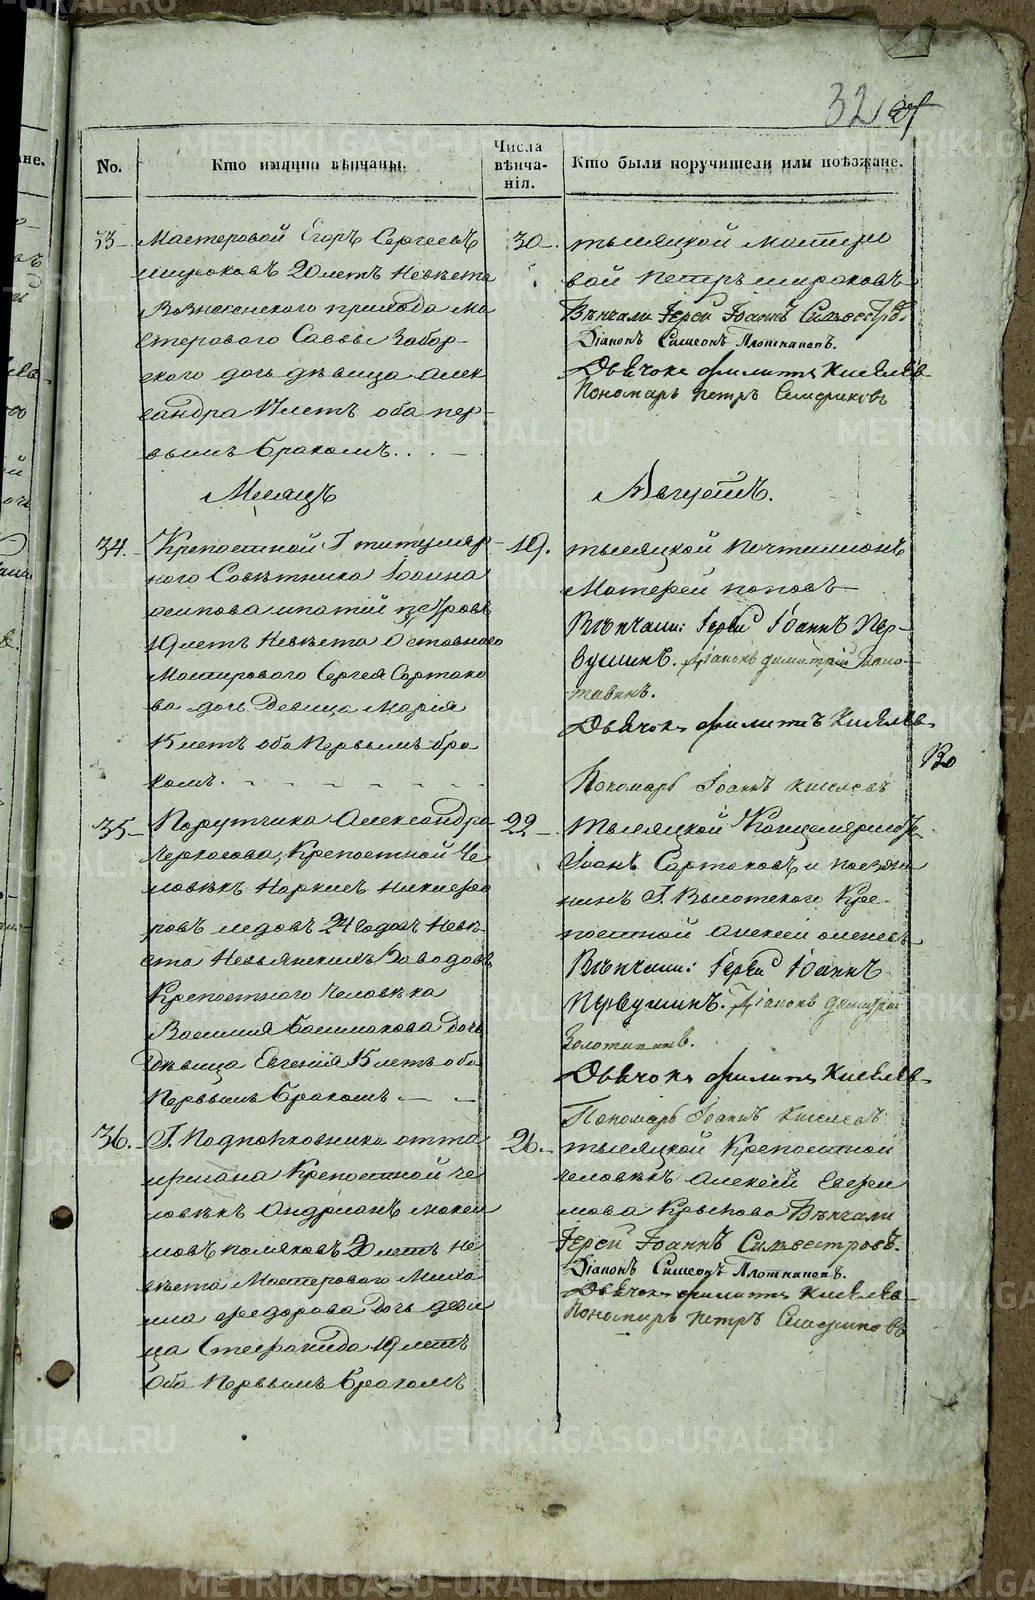 32
No.
Кто имянно вѣнчаны.
Числа вѣнча-нія.
Кто были поручители или поѣзжане.
33
Мастеровой Егоръ Сергеевъ
широковъ 20 летъ Невѣста
Вознесенского прихода Ма
стерового Саввы Забор-
ского дочь дѣвица Алек
сандра 17 летъ оба пер-
вымъ бракомъ.
30
тысяцкой мастеро
вой Петръ широковъ
Вѣнчали Іерей Іоаннъ Сильвестровъ
Діаконъ Симеонъ Плотниковъ.
Дьячокъ Филиппъ Киселевъ
Пономарь Петръ
Месяцъ
Августъ.
34.
Крепостной Г. титуляр-
ного Советника Іоанна
осипова ипатій петровъ
19 летъ Невѣста Отставного
Мастерового Сергея Сартако
ва дочь Девица Марія
15 летъ оба Первымъ бра
комъ.
19.
тысяцкой Почталіонъ
Матфей поповъ
Вѣнчали: Іерей Іоаннъ Пер-
вушинъ. Діаконъ Димитрій Золо-
тавинъ.
Дьячокъ Филиппъ Киселевъ
Во
Пономарь Іоаннъ Киселевъ
35
Порутчика Александра
Черкасова, Крепостной Че
ловѣкъ Наркисъ Никифоровъ
24 годовъ Невѣ
ста Невьянскихъ Заводовъ
Крепостного Человѣка
Василия Башмакова дочь
Дѣвица Евгенія 15 летъ оба
Первымъ бракомъ
22
Тысяцкой Канцеляристъ
Іоанъ Сартаковъ и поезжа
нинъ Г. Высотского Кре-
постной Алексеи
Вѣнчали: Іерей Іоаннъ
Первушинъ. Діаконъ Димитрій
Золотавинъ.
Дьячокъ Филиппъ Киселевъ
Пономарь Іоаннъ Киселевъ
36.
Г. Подполковника
Крепостной че
ловѣкъ Андріанъ Макси
мовъ поляковъ 20 летъ Не
вѣста Мастерового Миха
ила Федорова дочь деви
ца Стефанида 19 летъ
Оба Первымъ бракомъ
26.
тысяцкой Крепостной
человѣкъ Алексѣй
Вѣнчали
Іерей Іоаннъ Сильвестровъ.
Діаконъ Симеонъ Плотниковъ.
Дьячокъ Филиппъ Киселевъ
Пономарь Петръ
METRIKI.GASO-URAL.RU